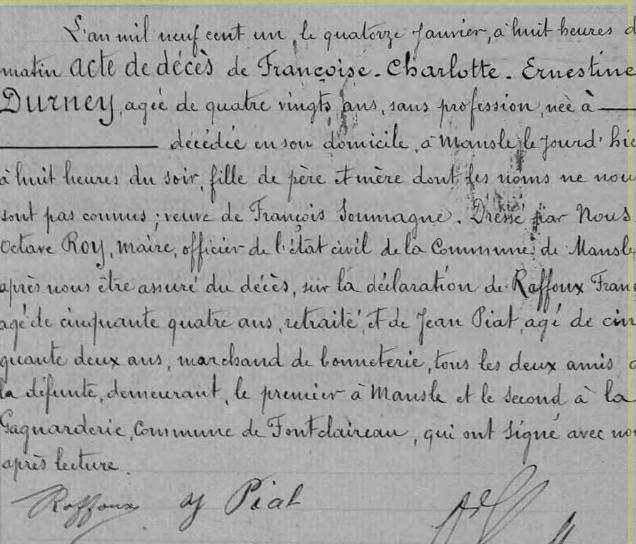 L'an mil neuf cent un, le quatorze Janvier, à huit heures d
matin acte de décès de Françoise-Charlotte-Ernestine
Durney, agée de quatre vingts ans, sans profession, née à
décédée en son domicile, à Mansle, le jourd'hie
à huit heures du soir, fille de père et mère dont les noms ne nou
sont pas connus; veuve de François Soumagne. Dressé par Nous
Octave Roy, maire, officier de l'état civil de la Commune de Mansle
après nous être assuré du décès, sur la déclaration de Raffoux Franç
agé de cinquante quatre ans, retraité et de Jean Piat, agé de cin
quante deux ans, marchand de bonneterie, tous les deux amis d
la défunte, demeurant, le premier à Mansle et le second à la
Gagnarderie, Commune de Fontclaireau, qui ont signé avec nou
après lecture.
Raffoux Piat